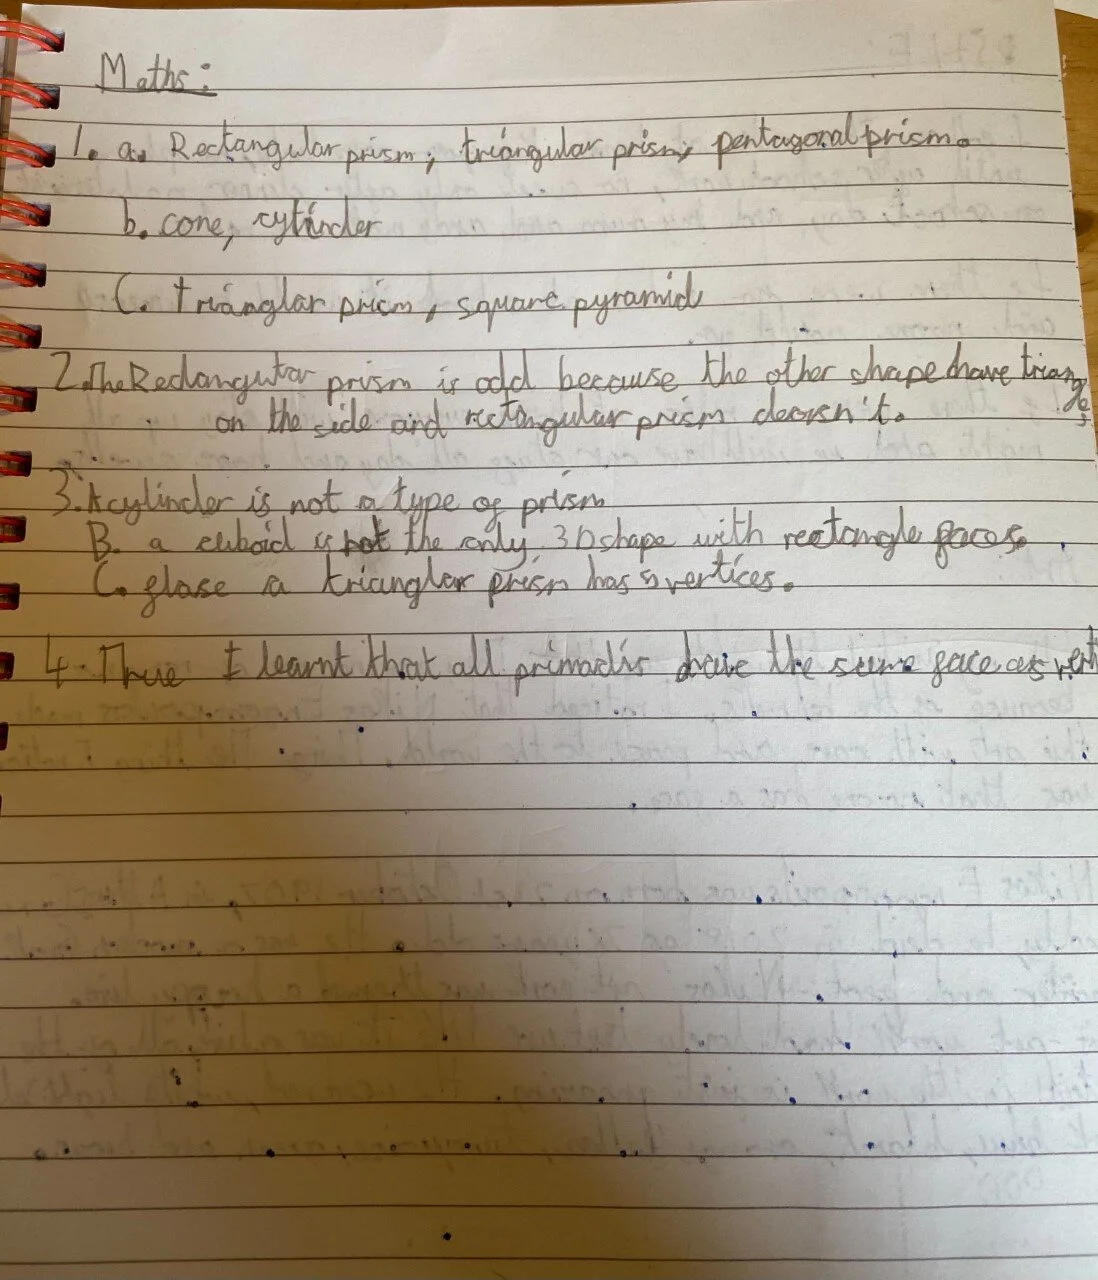 Maths:
1. a. Rectangular prism, triangular prism, pentagonal prism.
b. cone, cylinder
C. trianglar prism, square pyramid
2. The Rectangular prism is odd because the other shape have triangles
on the side and rectangular prism doesn't.
3. A cylinder is not a type of prism
B. a cuboid is not the only 3D shape with rectangle faces.
C. flase a trianglar prism has 5 vertices.
4. True I learnt that all have the same face as vert